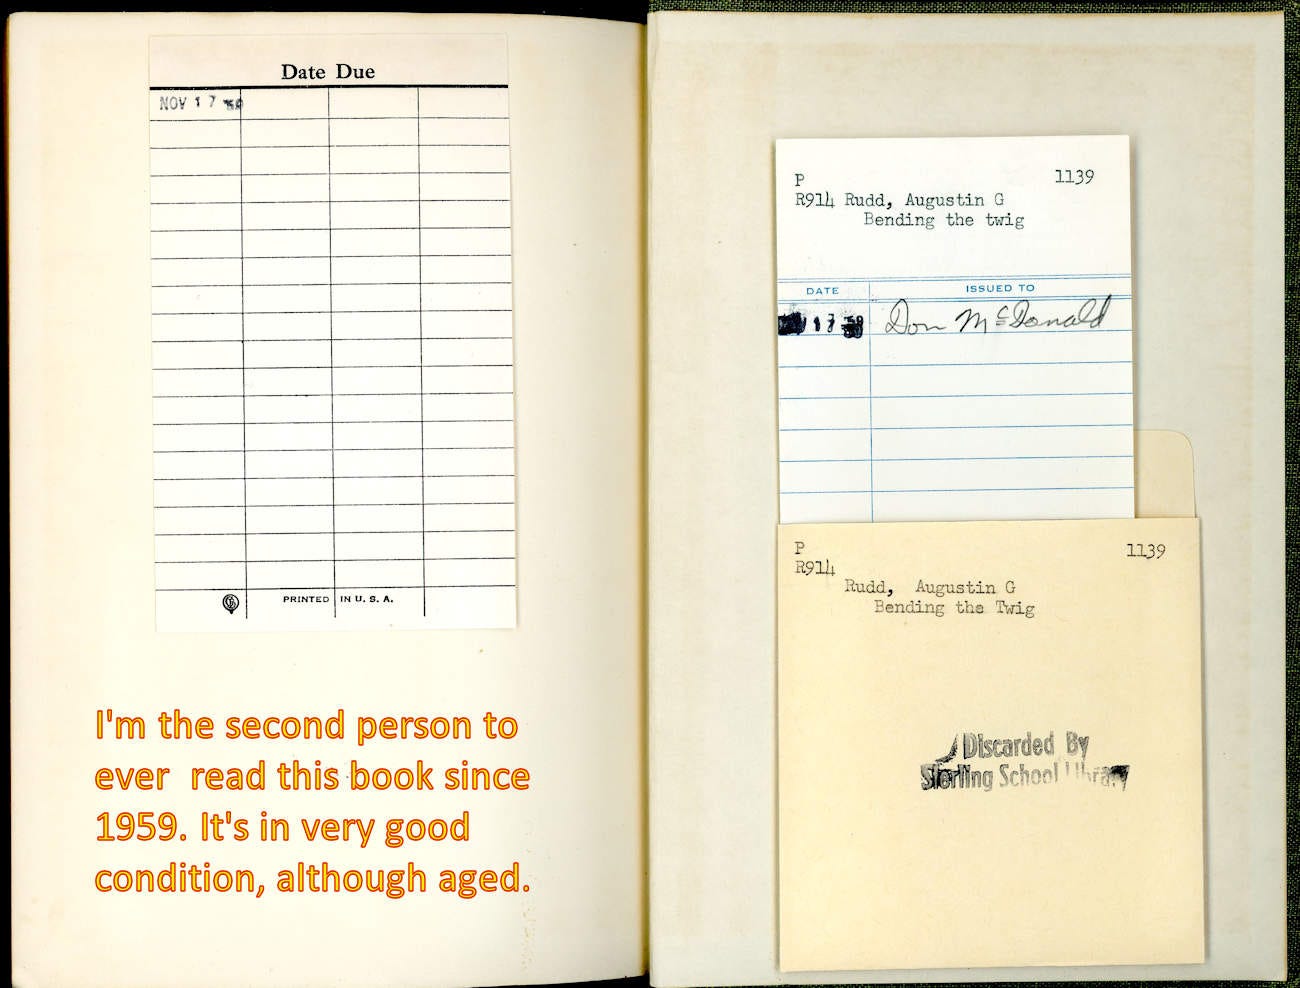 Date Due
NOV 17
PRINTED IN U. S. A.
I'm the second person to
ever read this book since
1959. It's in very good
condition, although aged.
P 1139
R914 Rudd, Augustin G
Bending the twig
DATE ISSUED TO
17 59 Don McDonald
P 1139
R914
Rudd, Augustin G
Bending the Twig
Discarded By
Sterling School Library